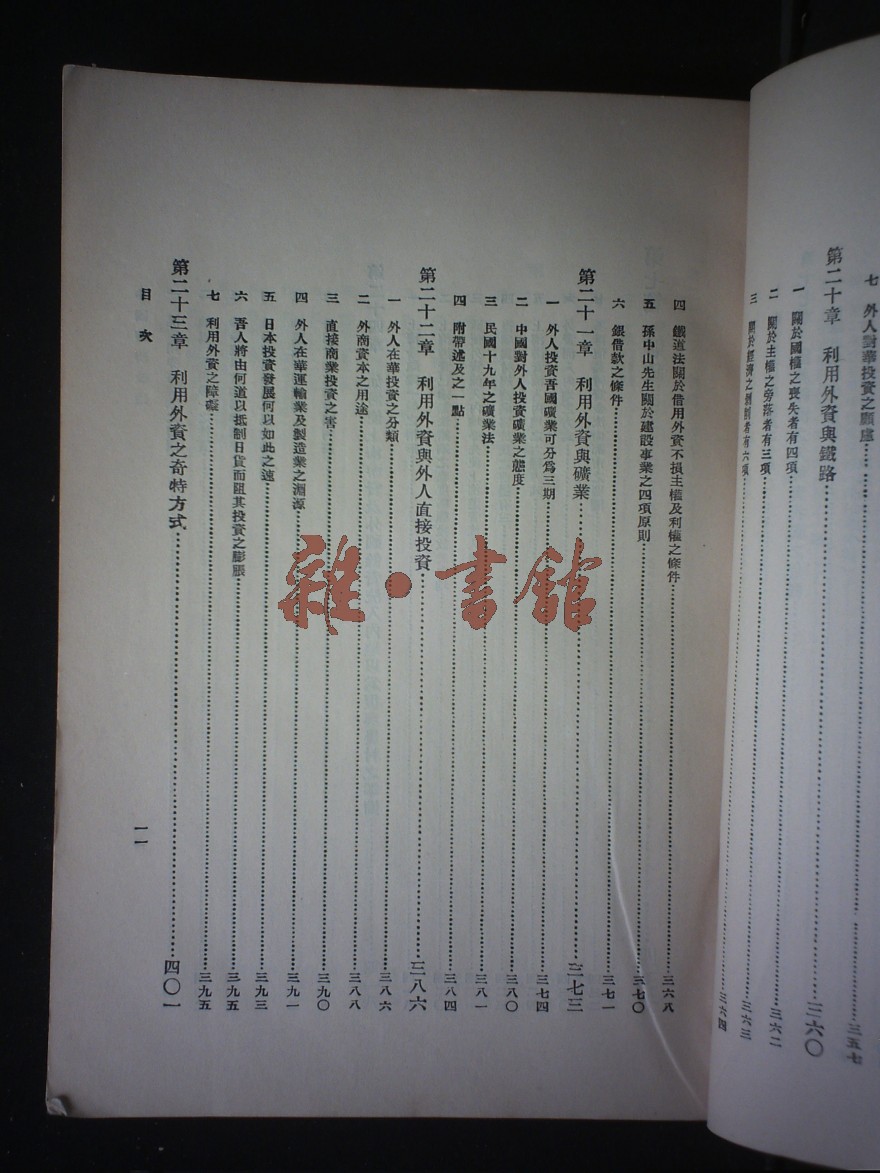 七　外人對華投資之顧慮……三五七
第二十章　利用外資與鐵路……三六〇
一　關於國權之喪失者有四項……三六二
二　關於主權之旁落者有三項……三六三
三　關於經濟之剝削者有六項……三六四
四　鐵道法關於借用外資不損主權及利權之條件……三六八
五　孫中山先生關於建設事業之四項原則……三七〇
六　銀借款之條件……三七一
第二十一章　利用外資與礦業……三七三
一　外人投資吾國礦業可分爲三期……三七四
二　中國對外人投資礦業之態度……三八〇
三　民國十九年之礦業法……三八一
四　附帶述及之一點……三八四
第二十二章　利用外資與外人直接投資……三八六
一　外人在華投資之分類……三八六
二　外商資本之用途……三八八
三　直接商業投資之害……三九〇
四　外人在華運輸業及製造業之淵源……三九一
五　日本投資發展何以如此之速……三九三
六　吾人將由何道以抵制日貨而阻其投資之膨脹……三九五
七　利用外資之障礙……三九五
第二十三章　利用外資之奇特方式……四〇一
目次
一一
雜·書館